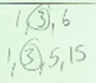 1, 3, 6
1, 3, 5, 15